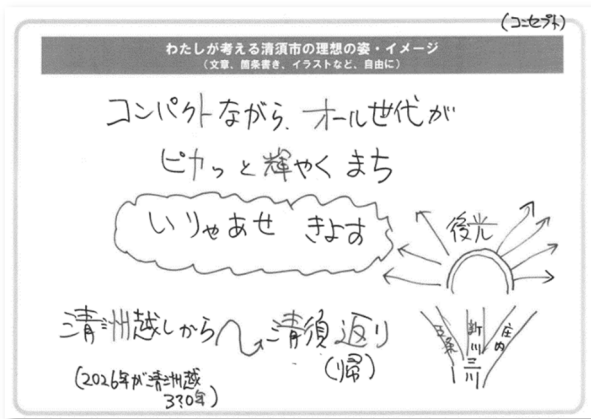 (コンセプト)
わたしが考える清須市の理想の姿・イメージ
(文章、箇条書き、イラストなど、自由に)
コンパクトながら、オール世代が
ピカッと輝やくまち
いりゃあせ きよす
後光
清洲越しから
清須返り
(帰)
(2026年が清洲越
3??0年)
五条
新川
庄内
三川